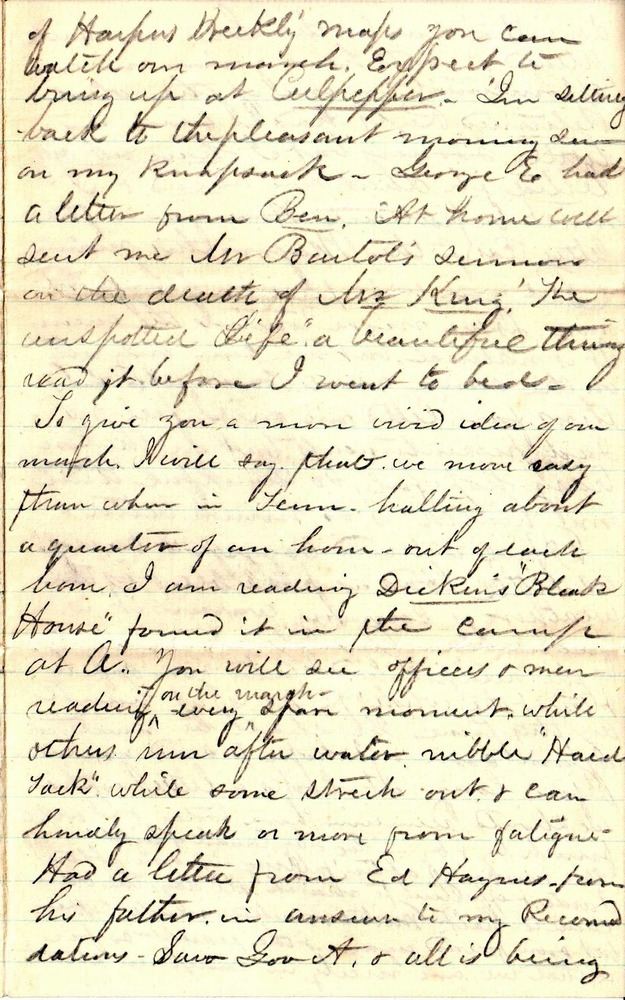 of Harpers Weekly maps you can
watch our march. Expect to
bring up at Culpepper - I'm sitting
back to the pleasant morning sun
on my knapsack - George E had
a letter from Ben. At home will
sent me Mr Bartol's sermon
on the death of Mr King, "The
unspotted Life" a beautiful thing
read it before I went to bed -
To give you a more vivid idea of our
march, I will say that we move easy
than when in Tenn - halting about
a quarter of an hour - out of each
hour, I am reading Dickins "Bleak
House" found it in the camp
at A. You will see officers & men
reading on the march every spare moment, while
others run after water nibble "Hard
Tack" while some strech out & can
hardly speak or move from fatigue -
Had a letter from Ed Haynes - from
his father, in answer to my Recomm
dations - Saw Gov A. & all is being